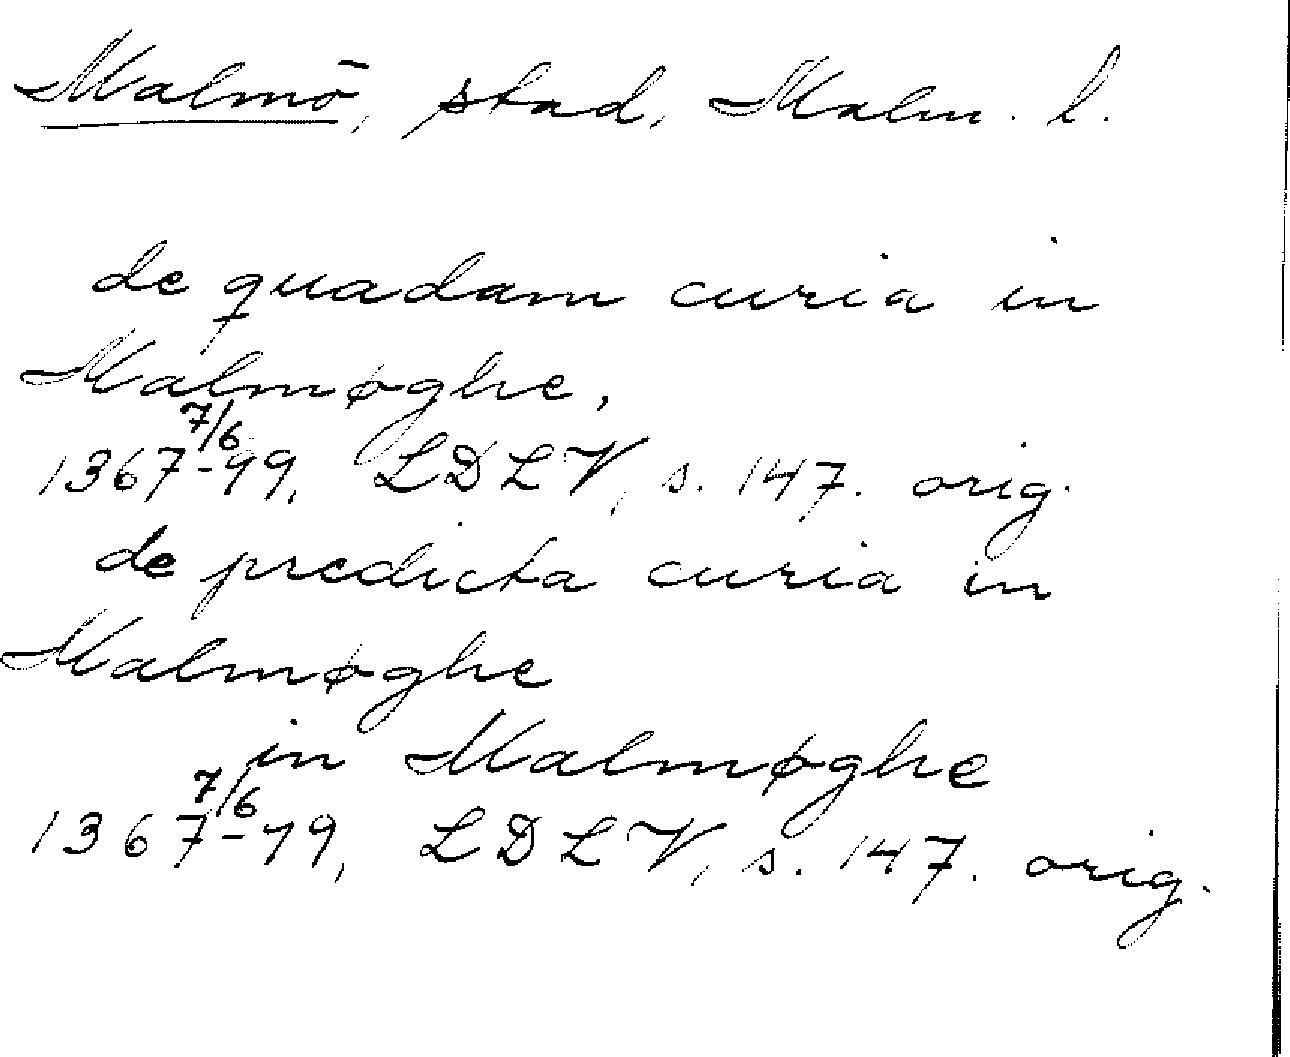 Malmö, stad, Malm. l.
de quadam curia in
Malmøghe,
7/6
1367-99, LDLV, s. 147. orig.
de predicta curia in
Malmøghe
in Malmøghe
7/6
1367-99, LDLV, s. 147. orig.